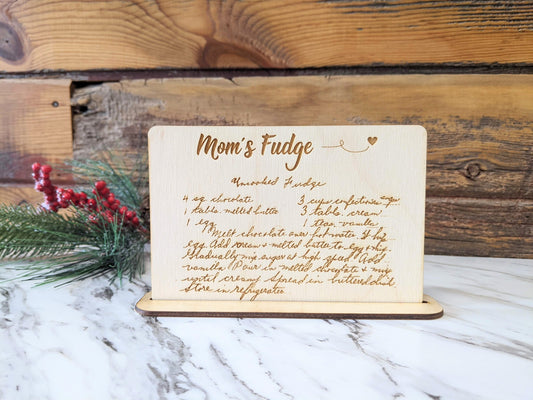 Mom's Fudge
Uncooked Fudge
4 sq. chocolate 3 cups confectioner
1 table. melted butter 3 table. cream
1 egg 1 tsp. vanilla
Melt chocolate over hot water. Whip
egg. Add cream & melted butter to egg & mix
Gradually mix sugar at high speed. Add
vanilla. Pour in melted chocolate & mix
until creamy. Spread in buttered dish
Store in refrigerator.